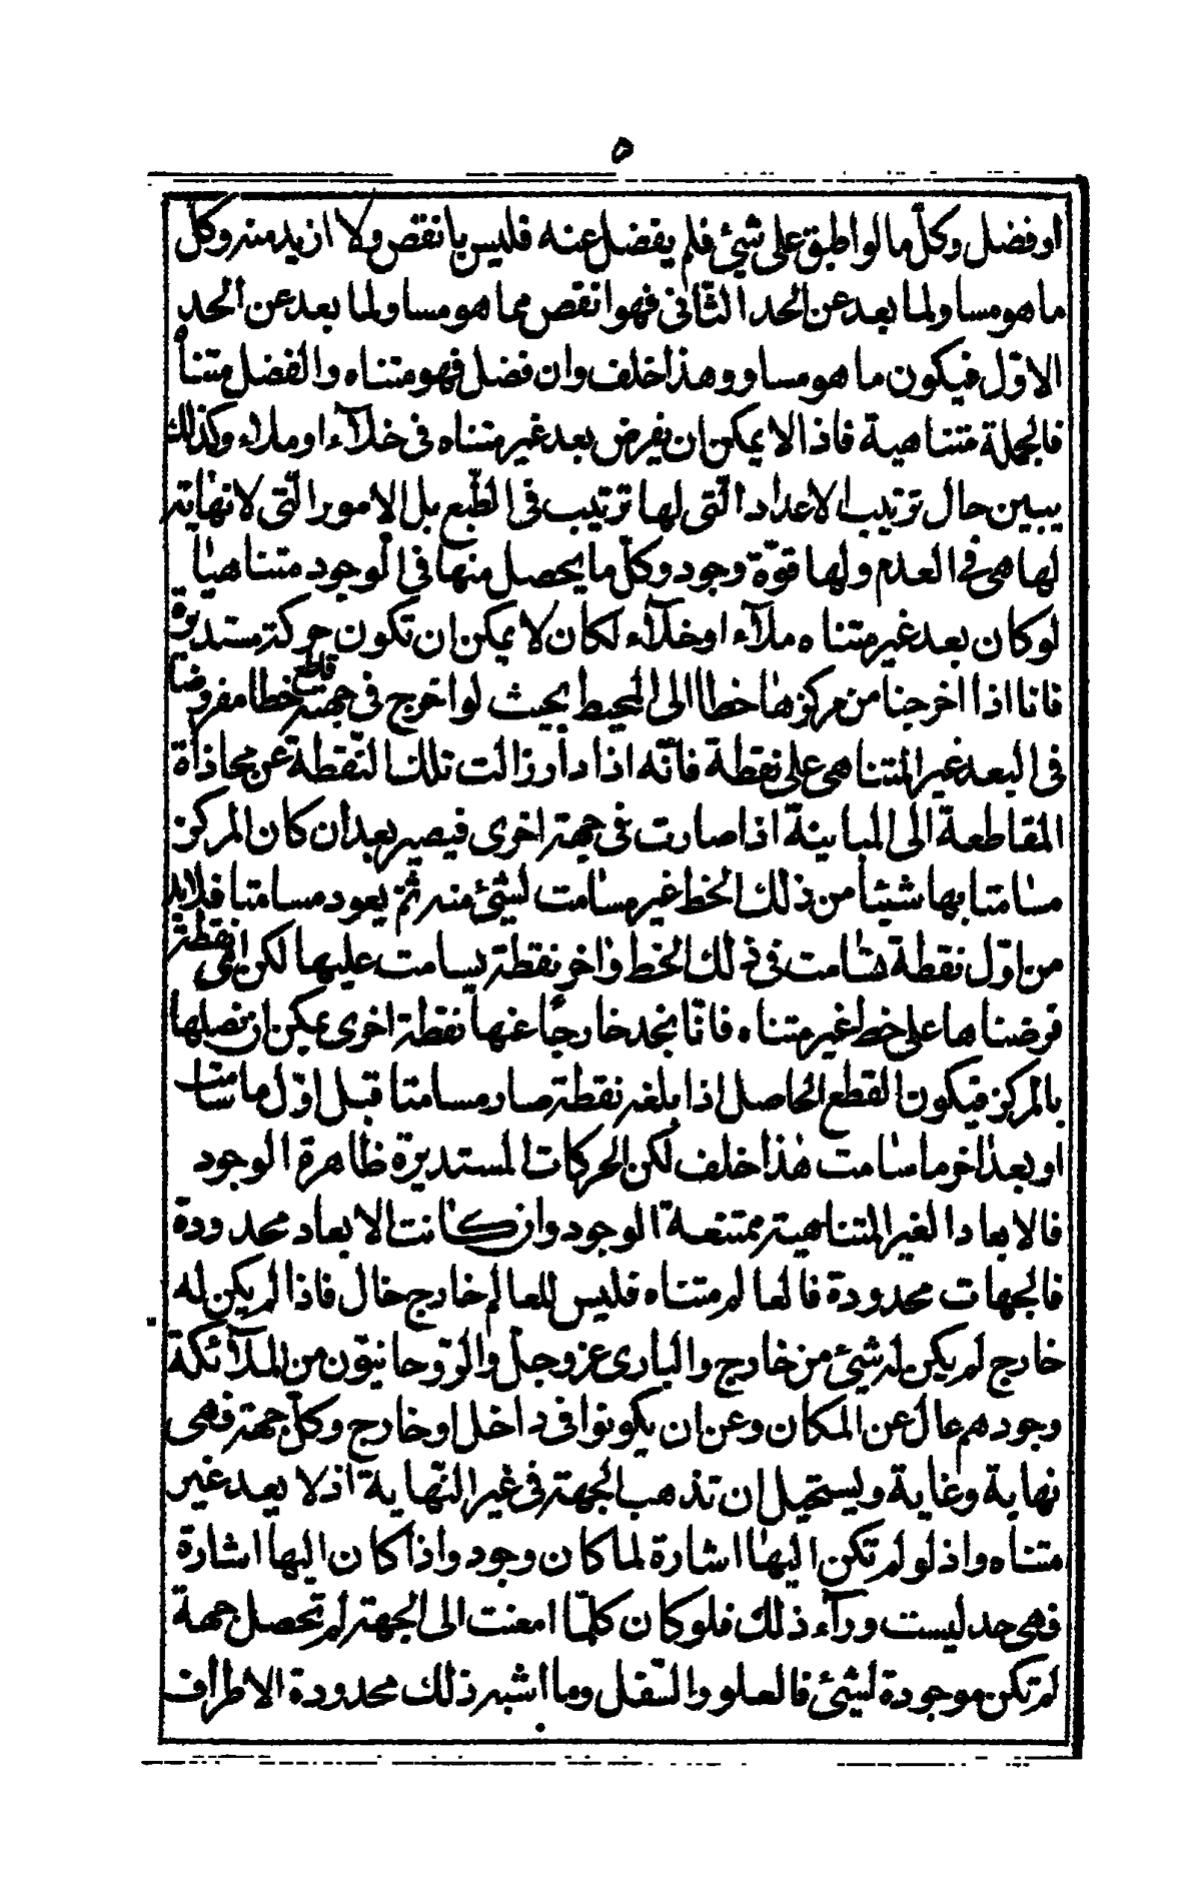 ٥
او فضل وكلّ ما لو اطبق على شيئ فلم يفضل عنه فليس بانقص ولا ازيد منه وكلّ
ما هو مساو لما بعد عن الحد الثّانى فهو انقص مما هو مساو لما بعد عن الحد
الاوّل فيكون ما هو مساو وهذا خلف وان فضل فهو متناه والفضل متناه
فالجملة متناهية فاذا لا يمكن ان يفرض بعد غير متناه فى خلآء او ملاء وكذلك
يبين حال ترتيب الاعداد الّتى لها ترتيب فى الطّبع بل الامور الّتى لا نهاية
لها هى فى العدم ولها قوّة وجود وكلّ ما يحصل منها فى الوجود متناهيا
لو كان بعد غير متناه ملآء او خلآء لكان لا يمكن ان تكون حركة مستديرة
فانا اذا اخرجنا من مركزها خطا الى المحيط بحيث لو اخرج فى جهته قاطع خطا مفروضا
فى البعد غير المتناهى على نقطة فانّه اذا دار زالت تلك النّقطة عن محاذاة
المقاطعة الى المباينة اذا صارت فى جهة اخرى فيصير بعد ان كان المركز
مسامتا بها شيئا من ذلك الخط غير مسامت لشيئ منه ثمّ يعود مسامتا فلا بد
من اوّل نقطة تسامت فى ذلك الخط واخر نقطة يسامت عليها لكن اىّ نقطة
فرضناها على خط غير متناه فانّا نجد خارجًا عنها نقطة اخرى يمكن ان نصلها
بالمركز فيكون القطع الحاصل اذا بلغه نقطة صار مسامتا قبل اوّل ما سامت
او بعد اخر ما سامت هذا خلف لكن الحركات المستديرة ظاهرة الوجود
فالابعاد الغير المتناهية ممتنعة الوجود وان كانت الابعاد محدودة
فالجهات محدودة فالعالم متناه فليس للعالم خارج خال فاذا لم يكن له
خارج لم يكن له شيئ من خارج والبارى عز وجلّ والرّوحانيّون من الملآئكة
وجودهم عال عن المكان وعن ان يكونوا فى داخل او خارج وكلّ جهة فهى
نهاية وغاية ويستحيل ان تذهب الجهة فى غير النّهاية اذ لا بعد غير
متناه واذ لو لم تكن اليها اشارة لما كان وجود واذا كان اليها اشارة
فهى حد ليست ورآء ذلك فلو كان كلّما امعنت الى الجهة لم تحصل جهة
لم تكن موجودة لشيئ فالعلو والسّفل وما اشبه ذلك محدودة الاطراف